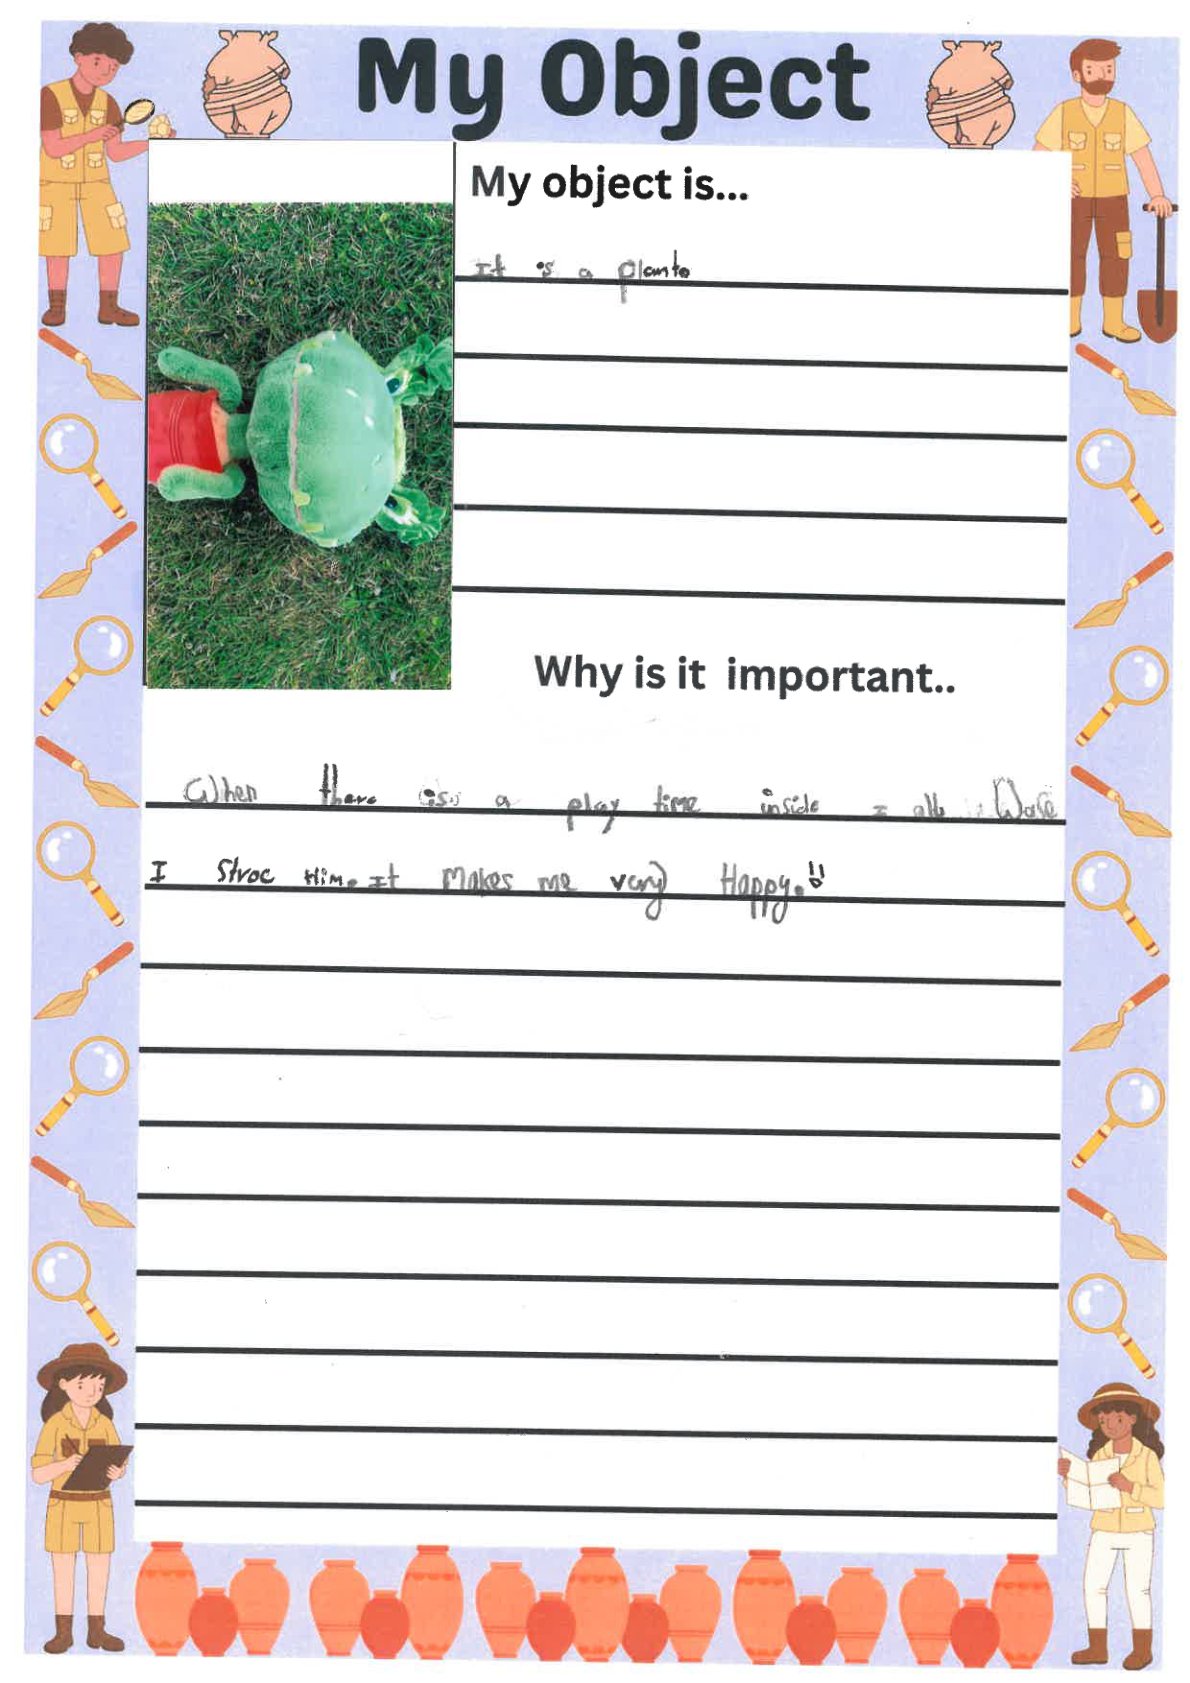 My Object
My object is...
It is a planto
Why is it important..
When there is a play time inside I all Wase
I Stroc Him. It Makes me very Happy.!!